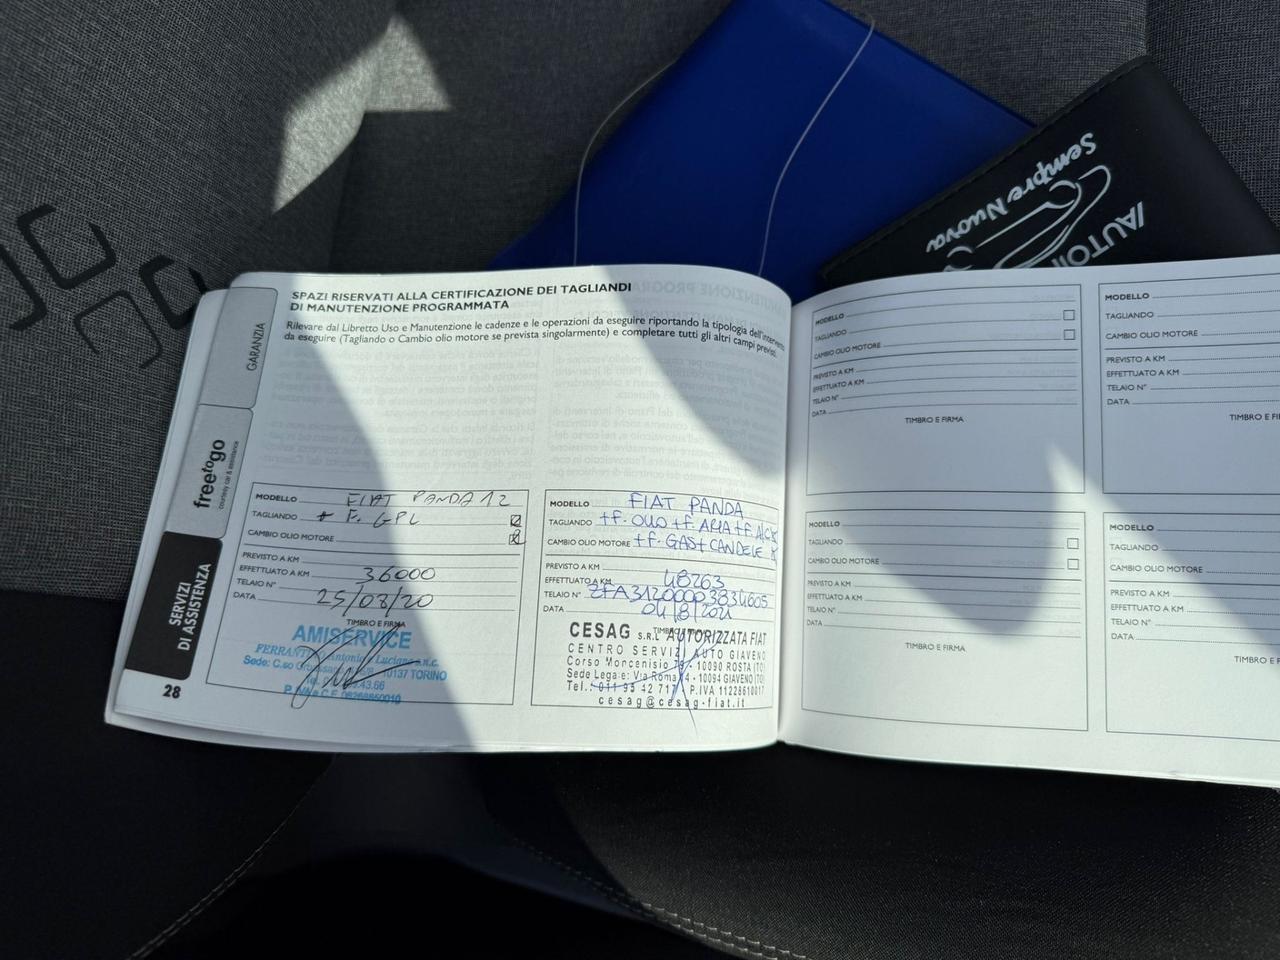 Sempre Nuova
GARANZIA
freetogo
courtesy car & assistance
SERVIZI
DI ASSISTENZA
28
SPAZI RISERVATI ALLA CERTIFICAZIONE DEI TAGLIANDI
DI MANUTENZIONE PROGRAMMATA
Rilevare dal Libretto Uso e Manutenzione le cadenze e le operazioni da eseguire riportando la tipologia dell'intervento
da eseguire (Tagliando o Cambio olio motore se prevista singolarmente) e completare tutti gli altri campi previsti.
MODELLO FIAT PANDA 12
TAGLIANDO + F. GPL
CAMBIO OLIO MOTORE
PREVISTO A KM
EFFETTUATO A KM 36000
TELAIO N°
DATA 25/08/20
TIMBRO E FIRMA
AMISERVICE
Sede: C.so 10137 TORINO
MODELLO FIAT PANDA
TAGLIANDO +F. OLIO +F. ARIA +F. A/C
CAMBIO OLIO MOTORE +F. GAS+CANDELE
PREVISTO A KM
EFFETTUATO A KM 48263
TELAIO N° ZFA31200003834605
DATA 04/8/2021
CESAG S.R.L AUTORIZZATA FIAT
CENTRO SERVIZI AUTO GIAVENO
Corso Moncenisio - 10090 ROSTA (TO)
Sede Legale: Via Roma - 10094 GIAVENO (TO)
Tel.: 011 95 42 717 P.IVA 11228610017
cesag@cesag-fiat.it
MODELLO
TAGLIANDO
CAMBIO OLIO MOTORE
PREVISTO A KM
EFFETTUATO A KM
TELAIO N°
DATA
TIMBRO E FIRMA
MODELLO
TAGLIANDO
CAMBIO OLIO MOTORE
PREVISTO A KM
EFFETTUATO A KM
TELAIO N°
DATA
TIMBRO E FI
MODELLO
TAGLIANDO
CAMBIO OLIO MOTORE
PREVISTO A KM
EFFETTUATO A KM
TELAIO N°
DATA
TIMBRO E FIRMA
MODELLO
TAGLIANDO
CAMBIO OLIO MOTORE
PREVISTO A KM
EFFETTUATO A KM
TELAIO N°
DATA
TIMBRO E F